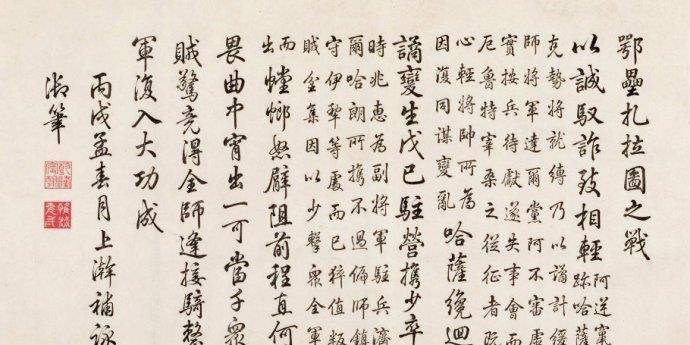 鄂壘扎拉圖之戰
以誠馭詐致相輕
阿逆竄
跡哈薩
克勢將就縛乃以譎計緩
師將軍達爾黨阿不審虛
實按兵待獻遂失事會而
厄魯特宰桑之從征者既
心輕將帥所為
因復同謀變亂
哈薩纔迴
譎變生戊已駐營攜少卒
時兆惠為副將軍駐兵濟
爾哈朗所攜不過偏師鎮
守伊犁等處而已猝值叛
賊坌集因以少擊眾全軍
而
出
螳螂怒臂阻前程直何
畏曲中宵出一可當千衆
賊驚竟得全師逢接騎整
軍復入大功成
丙戌孟春月上澣補詠
御筆